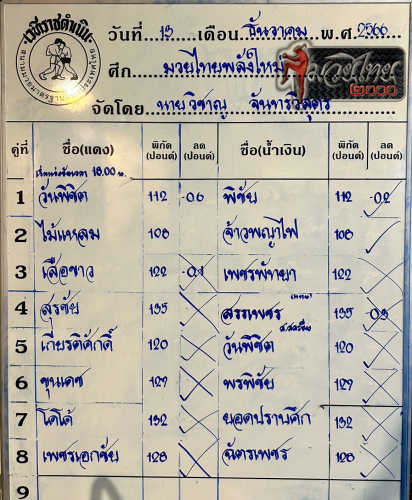 เวทีราชดำเนิน
วันที่ 13 เดือน ธันวาคม พ.ศ. 2566
ศึก มวยไทยพลังใหม่
มวยไทย 2000
จัดโดย นายวิชาญ จันทรวิสูตร
คู่ที่ ชื่อ(แดง) พิกัด (ปอนด์) ลด (ปอนด์) ชื่อ(น้ำเงิน) พิกัด (ปอนด์) ลด (ปอนด์)
18.00 น.
1 วันพิชิต 112 -0.6 พิชัย 112 -0.2
2 ไม้แหลม 108 จ้าวพญาไฟ 108
3 เสือขาว 122 -0.1 เพชรพัทยา 122
4 สุรชัย 135 สรรเพชร 135 0.3
5 เกียรติศักดิ์ 120 วันพิชิต 120
6 ขุนเดช 127 พรพิชัย 127
7 โคโด้ 132 ยอดปราบศึก 132
8 เพชรเอกชัย 128 ฉัตรเพชร 128
9